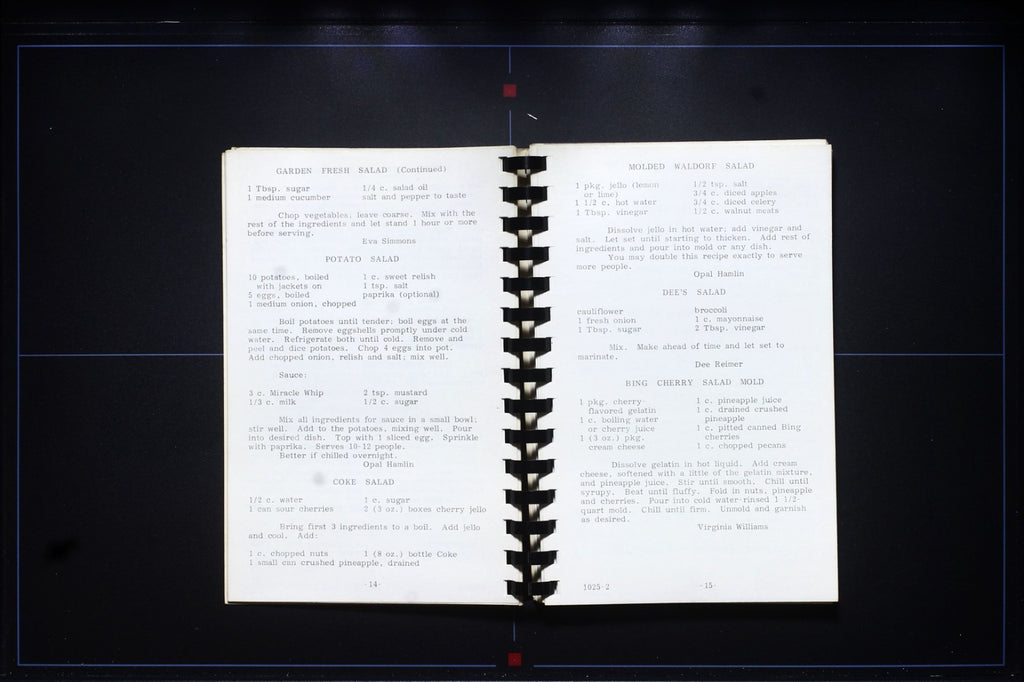 GARDEN FRESH SALAD (Continued)
1 Tbsp. sugar 1/4 c. salad oil
1 medium cucumber salt and pepper to taste
Chop vegetables, leave coarse. Mix with the
rest of the ingredients and let stand 1 hour or more
before serving.
Eva Simmons
POTATO SALAD
10 potatoes, boiled 1 c. sweet relish
with jackets on 1 tsp. salt
5 eggs, boiled paprika (optional)
1 medium onion, chopped
Boil potatoes until tender; boil eggs at the
same time. Remove eggshells promptly under cold
water. Refrigerate both until cold. Remove and
peel and dice potatoes. Chop 4 eggs into pot.
Add chopped onion, relish and salt; mix well.
Sauce:
3 c. Miracle Whip 2 tsp. mustard
1/3 c. milk 1/2 c. sugar
Mix all ingredients for sauce in a small bowl;
stir well. Add to the potatoes, mixing well. Pour
into desired dish. Top with 1 sliced egg. Sprinkle
with paprika. Serves 10-12 people.
Better if chilled overnight.
Opal Hamlin
COKE SALAD
1/2 c. water 1 c. sugar
1 can sour cherries 2 (3 oz.) boxes cherry jello
Bring first 3 ingredients to a boil. Add jello
and cool. Add:
1 c. chopped nuts 1 (8 oz.) bottle Coke
1 small can crushed pineapple, drained
-14-
MOLDED WALDORF SALAD
1 pkg. jello (lemon 1/2 tsp. salt
or lime) 3/4 c. diced apples
1 1/2 c. hot water 3/4 c. diced celery
1 Tbsp. vinegar 1/2 c. walnut meats
Dissolve jello in hot water; add vinegar and
salt. Let set until starting to thicken. Add rest of
ingredients and pour into mold or any dish.
You may double this recipe exactly to serve
more people.
Opal Hamlin
DEE'S SALAD
cauliflower broccoli
1 fresh onion 1 c. mayonnaise
1 Tbsp. sugar 2 Tbsp. vinegar
Mix. Make ahead of time and let set to
marinate.
Dee Reimer
BING CHERRY SALAD MOLD
1 pkg. cherry- 1 c. pineapple juice
flavored gelatin 1 c. drained crushed
1 c. boiling water pineapple
or cherry juice 1 c. pitted canned Bing
1 (3 oz.) pkg. cherries
cream cheese 1 c. chopped pecans
Dissolve gelatin in hot liquid. Add cream
cheese, softened with a little of the gelatin mixture,
and pineapple juice. Stir until smooth. Chill until
syrupy. Beat until fluffy. Fold in nuts, pineapple
and cherries. Pour into cold water-rinsed 1 1/2-
quart mold. Chill until firm. Unmold and garnish
as desired.
Virginia Williams
1025-2 -15-